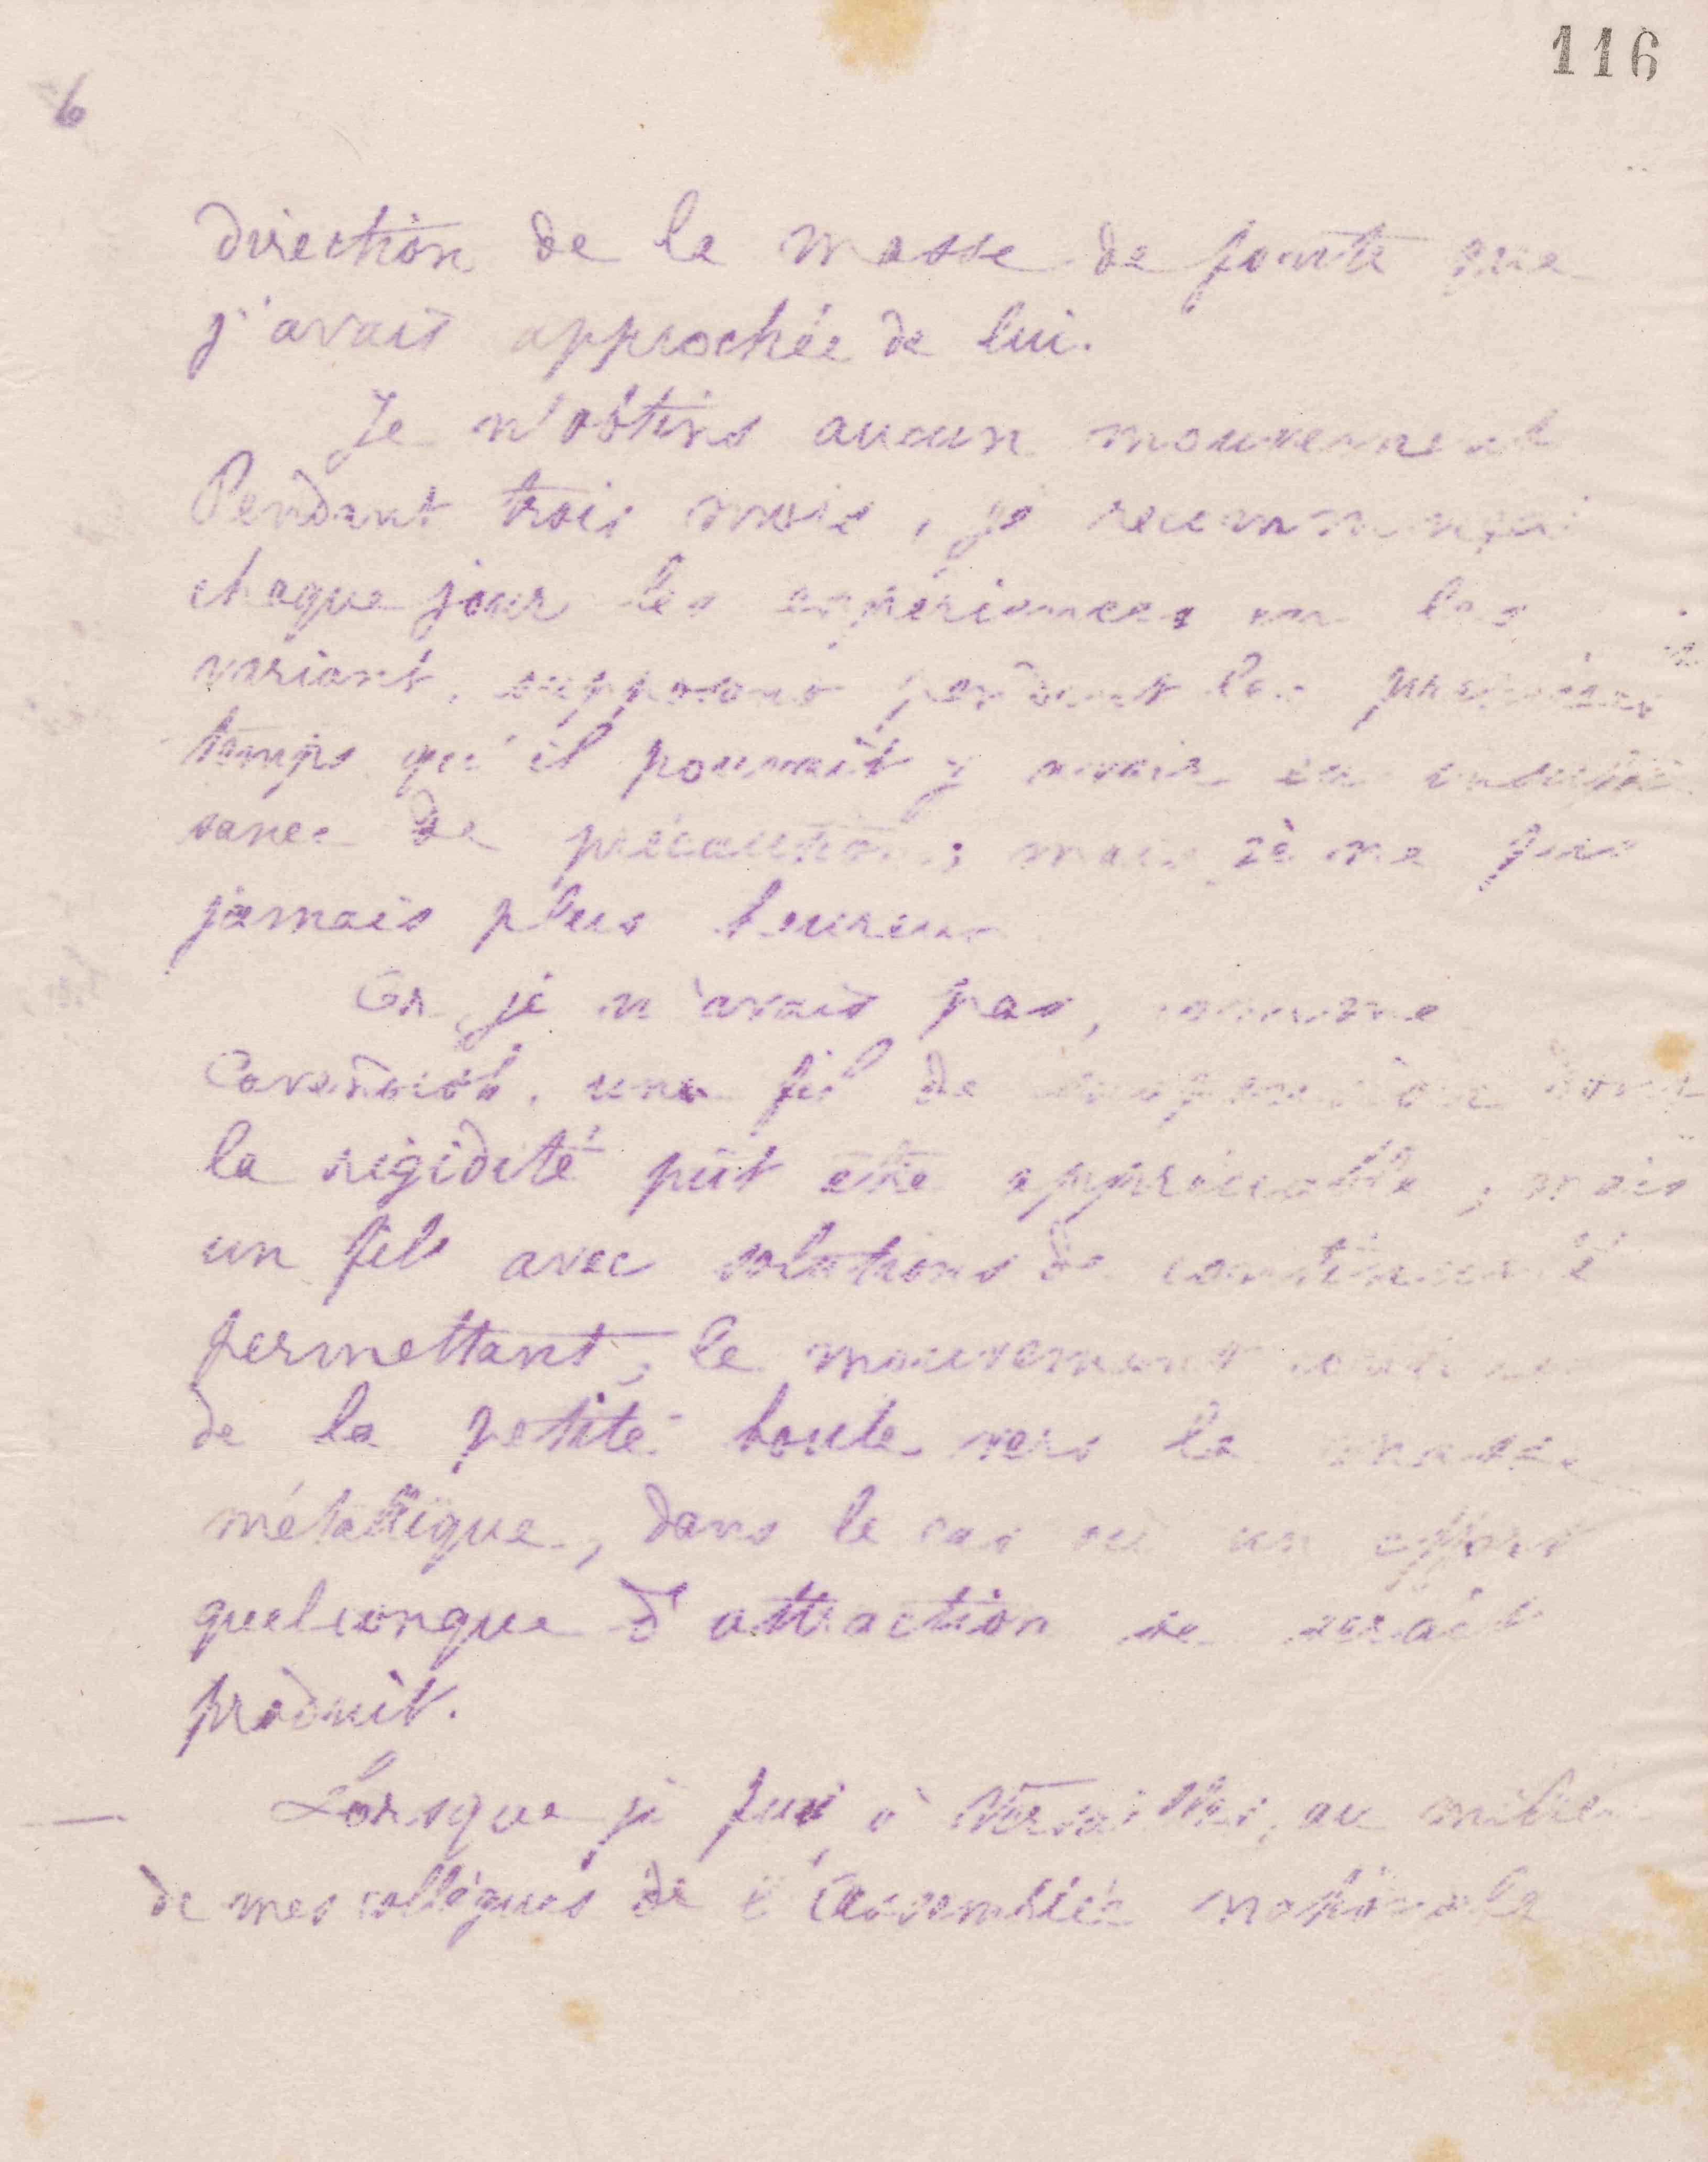 116
6
direction de la masse de fonte que
j'avais approchée de lui.
Je n'obtins aucun mouvement
Pendant trois mois, je recommençai
chaque jour les expériences en les
variant, supposant pendant les premiers
temps qu'il pouvait y avoir eu insuffi
sance de précautions; mais je ne fus
jamais plus heureux
Or je n'avais pas, comme
Cavendish, une fil de suspension dont
la rigidité pût être appréciable, mais
un fil avec solutions de continuité
permettant, le mouvement continu
de la petite boule vers la masse
métallique, dans le cas où un effort
quelconque d'attraction se serait
produit.
— Lorsque je fus, à Versailles, au milieu
de mes collègues de l'Assemblée nationale